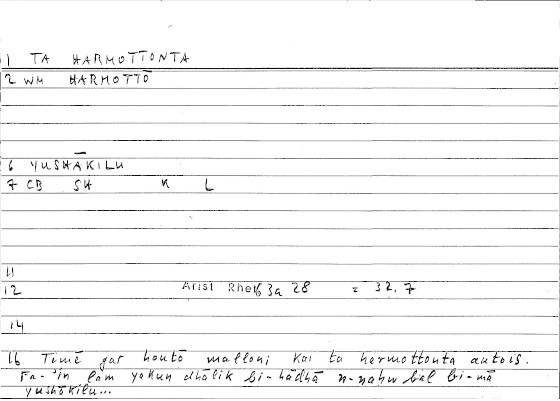 1 TA HARMOTTONTA
2 WM HARMOTTŌ
6 YUSHĀKILU
7 CB SH K L
11
12 Arist Rhet 63a 28 = 32,7
14
16 Timē gar houtō malloni kai ta harmottonta autois.
Fa-'in lam yakun dhālik bi-hādhā n-nahw bal bi-mā
yushākilu...